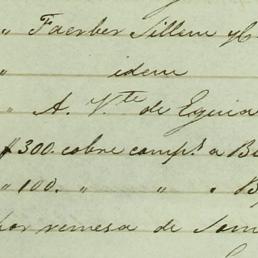 " Faerber Sillem y C
" idem
" A. V.te de Eguia
$300. cobre comp.s a B
" 100. " " " B
por remesa de